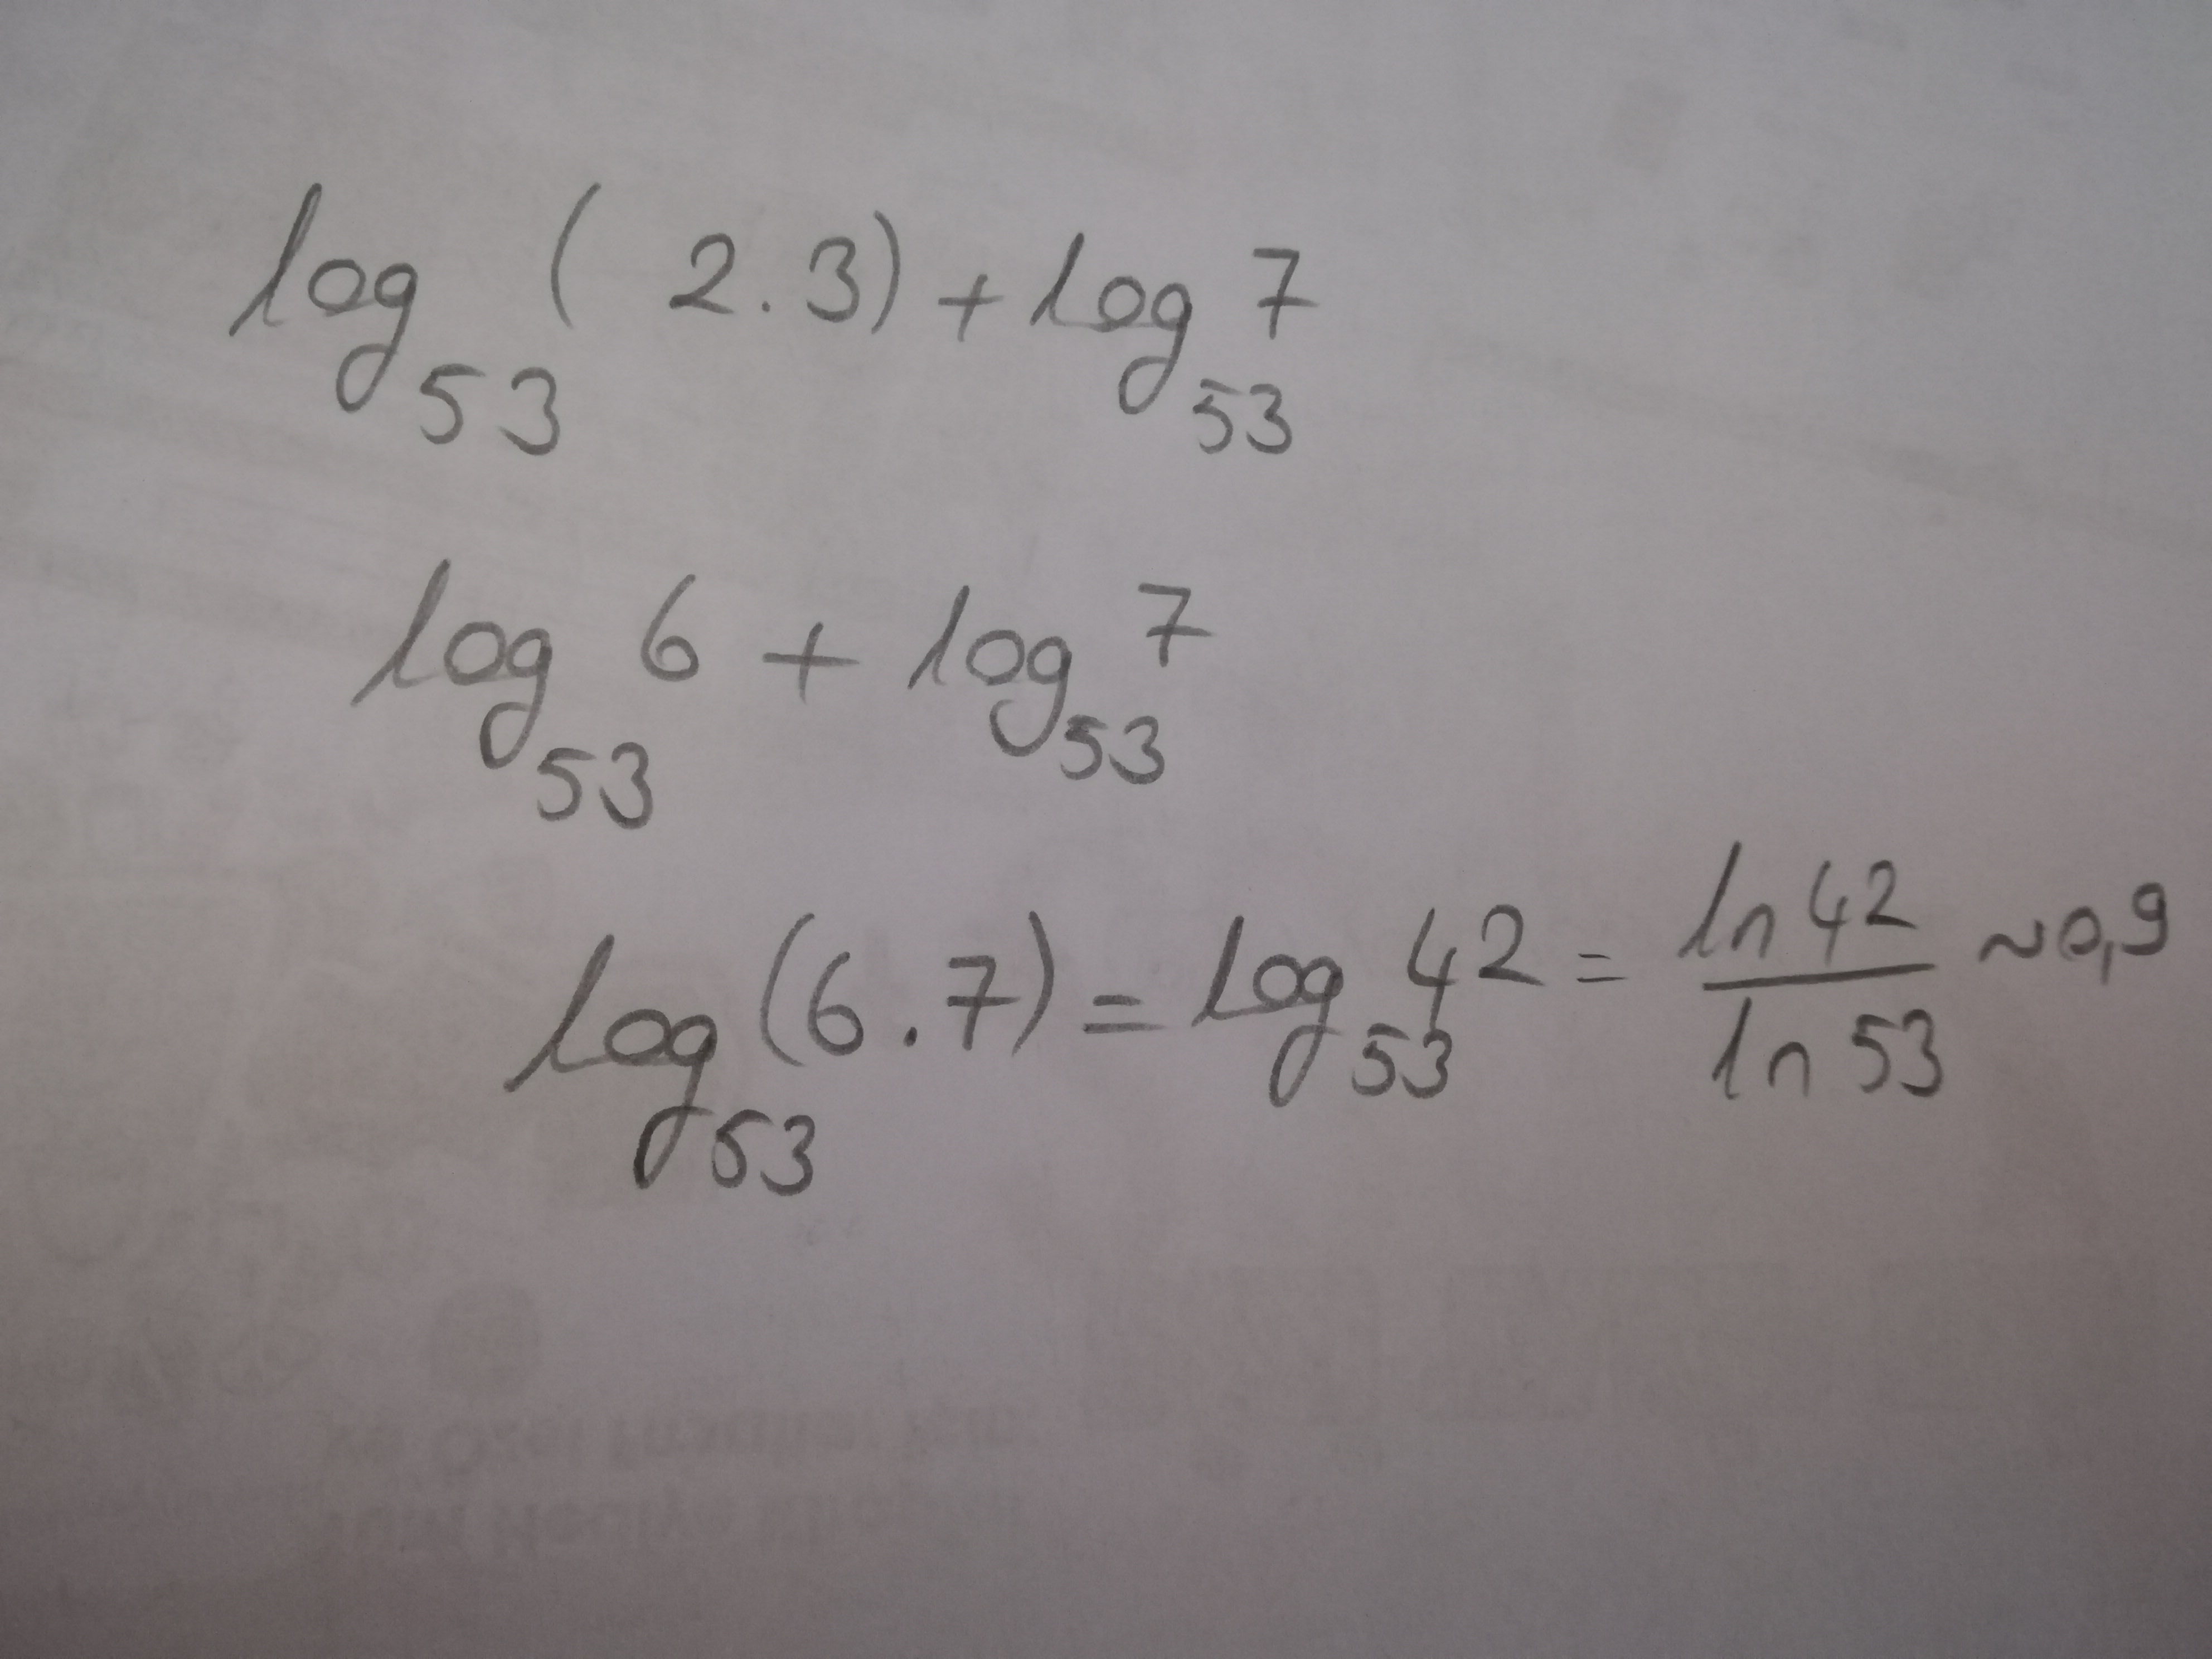 log₅₃ ( 2.3) + log₅₃ 7
log₅₃ 6 + log₅₃ 7
log₅₃ (6.7) = log₅₃ 42 = ln 42 / ln 53 ~ 0,9